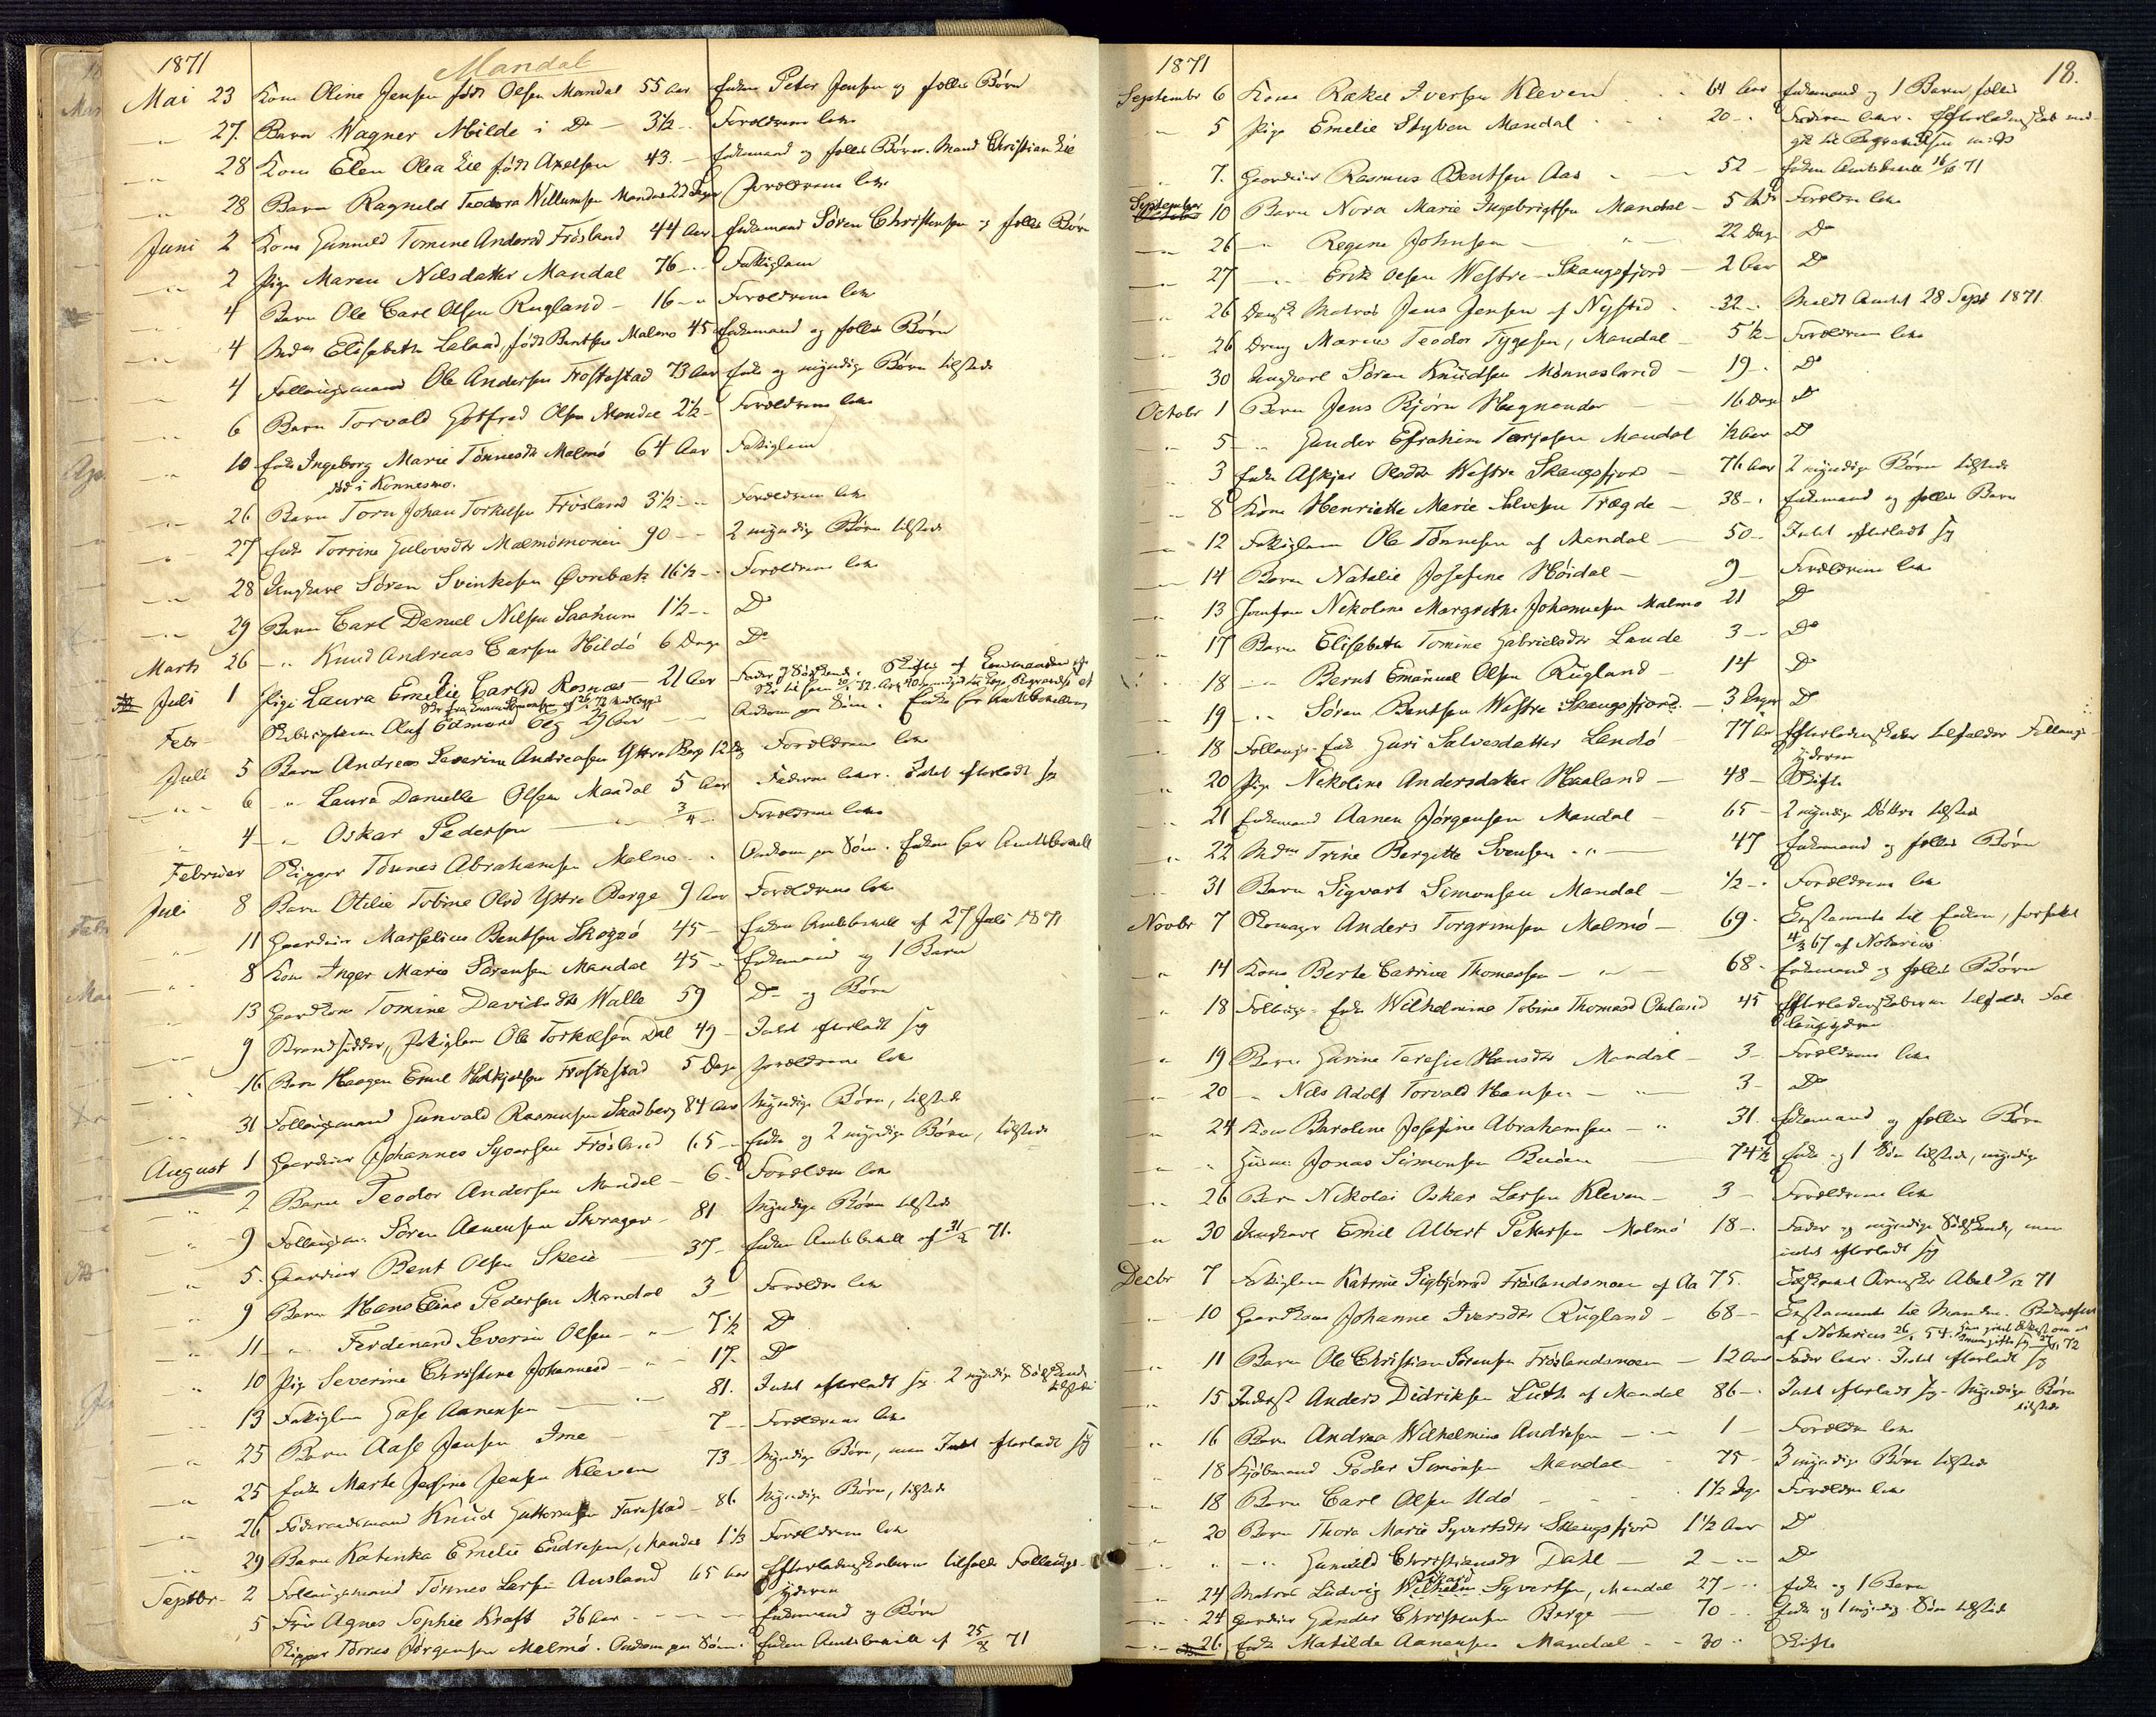 1871 Mandal
Mai 23 Kone Oline Jensen født Olsen Mandal 55 Aar Enkem Peter Jensen og fælles Børn
27. Barn Wagner Milde i Do 3½ Forældrene leve
28 Kone Elen Olea Lie født Axelsen 43. Enkemand og fælles Børn. Mand Christian Lie
28 Barn Ragnild Teodora Willumsen Mandal Dage Forældrene leve
Juni 2 Kone Gunnild Tomine Andersd Frøsland 44 Aar Enkemand Søren Christensen og fælles Børn
2 Pige Maren Nilsdatter Mandal 76 Fattiglem
4 Barn Ole Carl Olsen Rugland 16 Forældrene leve
4 Mdm Elisabeth Lalaad, født Bentsen Malmø 45 Enkemand og fælles Børn
4 Follaugsmand Ole Andersen Frostestad 73 Aar Enke og myndige Børn tilstede
6 Barn Torvald Gotfred Olsen Mandal 2½ Forældrene leve
10 Enke Ingeborg Marie Tønnesdtr Malmø 64 Aar Fattiglem
død i Konnesmo.
26 Barn Torn Johan Torkelsen Frøsland 3½ Forældrene leve
27 Enke Torrine Gulovsdtr Malmømonien 90 2 myndige Børn tilstede
28 Ungkarl Søren Svinkesen Øvrebæk 16½ Forældrene leve
29 Barn Carl Daniel Nilsen Saahum 1½ Do
Marts 26 Knud Andreas Carsen Hildø 6 Dage Do
Juli 1 Pige Laura Emilie Carlsd Rosnæs 21 Aar Fader og Søskende. Skifte af
Febr Oluf Edmand 29 Aar Omkom paa Søen. Enken for Amtsbevilling
Juli 5 Barn Andreas Severine Andreasen Yttre Berge 12 Dg Forældrene leve
6 Laura Danielle Olsen Mandal 5 Aar Faderen lever. Intet efterladt sig
4 Oskar Pedersen ¾ Forældrene leve
Februar Skipper Tønnes Abrahamsen Malmø Omkom paa Søen. Enken har Amtsbevill
Juli 8 Barn Otilie Tobine Olsd Yttre Berge 9 Aar Forældrene leve
11 Gaardbr Marselius Bentsen Skogsø 45 Enken Amtsbevill af 27 Juli 1871
8 Kone Inger Marie Sørensen Mandal 45 Enkemand og 1 Barn
13 Gaardkone Tomine Davidsdtr Walle 59 Do og Børn
9 Strandsidder, Fattiglem Ole Torkelsen Dal 49 Intet efterladt sig
16 Barn Haagen Emil Frostestad 5 Dage Forældrene leve
31 Follaugsmand Gunvald Rasmusen Skadberg 84 Aar Myndige Børn, tilstede
August 1 Gaardbr Johannes Syversen Frøsland 65 Enke og 2 myndige Børn, tilstede
2 Barn Teodor Andersen Mandal 6. Forældre leve
9 Follaugsm. Søren Aanensen Skrager 81 Myndige Børn tilstede
5. Gaardbr Bent Olsen Skeie 37 Enken Amtsbevill af 31/8 71.
9 Barn Hans Elias Pedersen Mandal 3 Forældre leve
11 Ferdinand Severin Olsen 7½ Do
10 Pige Severine Christine Johannesd 17. Do
13 Fattiglem Gose Aanensen 81. Intet efterladt sig. 2 myndige Søskende tilstede
25 Barn Aase Jensen Ime 7 Forældrene leve
25 Enke Marte Jesine Jensen Kleven 73 Myndige Børn, men Intet efterladt sig
26 Føderaadsmand Knud Guttormsen Farestad 86 Myndige Børn, tilstede
29 Barn Katinka Emelie Endresen, Mandal 1½ Forældrene leve
Septbr 2 Follaugsmand Tønnes Larsen Ausland 65 Aar Efterladenskaberne tilfalde Follaugs-
yderen
5 Fru Agnes Sophie Kraft 36 Aar Enkemand og Børn
Skipper Torres Jørgensen Malmø. Omkom paa Søen. Enken Amtsbevill af 25/8 71
1871 18.
September 6 Kone Rakel Iversen Kleven 64 Aar Enkemand og 1 Barn fælles
5 Pige Emelie Styben Mandal 20 Faderen lever. Efterladenskab med-
gik til Begravelsen
7. Gaardbr Rasmus Bentsen Aas 52 Enken Amtsbevill 16/10 71
September 10 Barn Nora Marie Ingebrigtsen Mandal 5 Mdr Forældre leve
26 Regine Johnsen 22 Dage Do
27 Erik Olsen Westre-Skaugsfjord 2 Aar Do
26 Dansk Matros Jens Jensen af Nysted 32 Meldt Amtet 28 Sept 1871
26 Dreng Marius Teodor Tygesen, Mandal 5½ Forældrene leve
30 Ungkarl Søren Knudsen Mønnesland 19. Do
Octobr 1 Barn Jens Bjørn Hegnander 16 Dage Do
5 Gunder Efrahim Tarjesen Mandal ½ Aar Do
3 Enke Askjer Olsdtr Westre Skaugsfjord 76 Aar 2 myndige Børn tilstede
8 Kone Henriette Marie Salvesen Trægde 38 Enkemand og fælles Børn
12 Fattiglem Ole Tønnesen af Mandal 50 Intet efterladt sig
14 Barn Natalie Josefine Høidal 9 Forældrene leve
13 Jomfru Nikoline Margrethe Johannesen Malmø 21 Do
17 Barn Elisabeth Tomine Gabrielsdtr Lande 3 Do
18 Bernt Emanuel Olsen Rugland 14 Do
19 Søren Bentsen Westre Skaugsfjord 3 Dage Do
18 Follaugs-Enke Guri Salvesdatter Landø 77 Aar Efterladenskaber tilfalder Follaugs-
yderen
20 Pige Nikoline Andersdatter Haaland 48 Skifte
21 Enkemand Aanen Jørgensen Mandal 65 2 myndige Døttre tilstede
22 Mdm Trine Bergitte Svensen 47 Enkemand og fælles Børn
31 Barn Sigvart Simonsen Mandal ½ Forældrene leve
Novbr 7 Skomager Anders Torgrimsen Malmø 69. Testamente til Enken, forfattet
4/3 67 af Notarius
14 Kone Berte Catrine Thomassen 68 Enkemand og fælles Børn
18 Follaugs-Enke Wilhelmine Tobine Thomasd 45 Efterladenskaberne tilfalde Fol-
laugsyderen
19 Barn Gurine Teresie Hansdtr Mandal 3 Forældrene leve
20 Nils Adolf Torvald Hansen 3 Do
24 Kone Baroline Josefine Abrahamsen 31. Enkemand og fælles Børn
Jonas Simonsen Buøen 74½ Enke og 1 Søn tilstede, myndig
26 Barn Nikolai Oskar Larsen Kleven 3 Forældrene leve
30 Ungkarl Emil Albert Pettersen Malmø 18 Fader og myndige Søskende, men
intet efterladt sig
Decbr 7 Fattiglem Katrine Sigbjørnsd Frøslandsmoen af Aa 75. Abel 9/12 71
10 Gaardkone Johanne Iversdtr Rugland 68 Testamente til Manden.
af Notarius 26/1 54.
11 Barn Ole Christian Sørensen Frøslandsmoen 12 Aar Fader lever. Intet efterladt sig
15 Inderst Anders Didriksen Luth af Mandal 86 Intet efterladt sig. Myndige Børn
tilstede
16 Barn Andrea Wilhelmine Andresen 1 Forældre leve
18 Kjøbmand Peder Simonsen Mandal 75 3 myndige Børn tilstede
18 Barn Carl Olsen Udø 1½ Dg. Forældre leve
20 Barn Thora Marie Syvertsdtr Skaugsfjord 1½ Aar Do
Gunild Christiansdtr Dahl 2 Do
24 Matros Ludvig Rikard Syvertsen, Mandal 27 Enke og 1 Barn
24 Gaardbr Gunder Christensen Berge 70 Enke og 1 myndig Søn tilstede
26 Enke Matilde Aanensen Mandal 30 Skifte